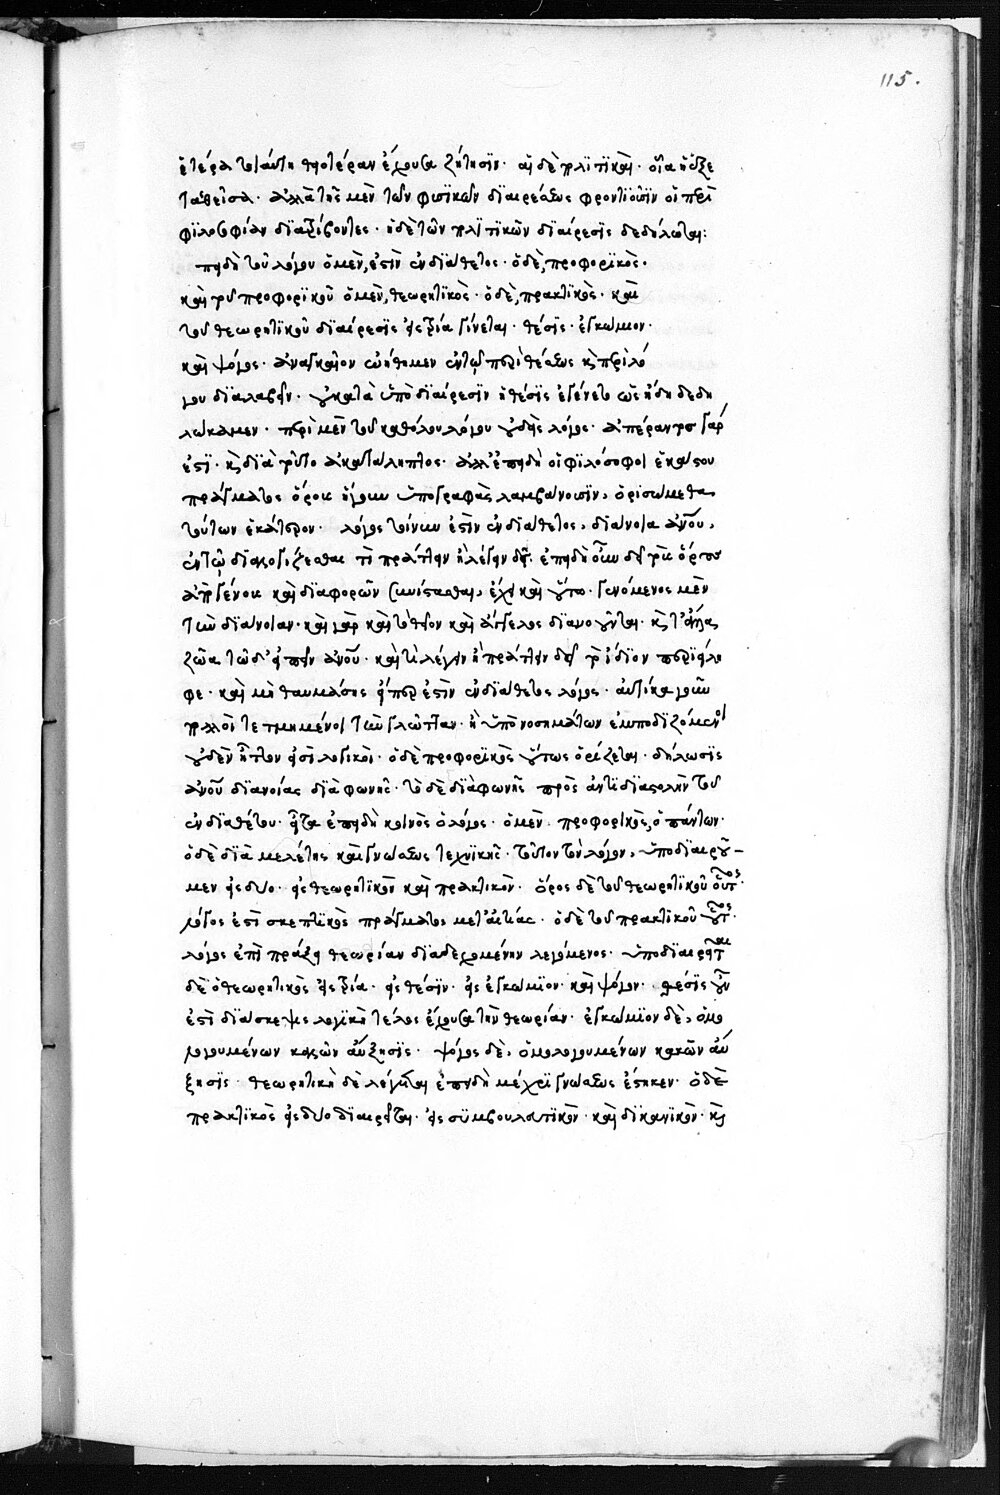 115.
ἑτέρα τοιαύτη ποτέραν ἔχουσα ζήτησϊν· αἱ δὲ πολϊτικαὶ· οἵα ἡ ἐξε
ταθεῖσα· ἀλλὰ τῆς μὲν τῶν φυσϊκῶν δϊαιρέσεως φροντϊοῦσϊν οἱ περὶ
φϊλοσοφίαν δϊατρίβοντες· ἡ δὲ τῶν πολϊτικῶν δϊαίρεσϊς δεδήλωται:
πειδὴ τοῦ λόγου ὁ μὲν, ἐστὶν ἐνδϊάθετος· ὁ δὲ, προφορϊκὸς·
καὶ τοῦ προφορϊκοῦ ὁ μὲν, θεωρητϊκὸς· ὁ δὲ, πρακτϊκὸς· καὶ
τοῦ θεωρητϊκοῦ δϊαίρεσϊς εἰς τρία γίνεται· θέσϊς· ἐγκώμιον·
καὶ ψόγος· ἀναγκαῖον ᾠήθημεν ἐν τῷ περὶ θέσεως καὶ περὶ λό
γου δϊαλαβεῖν· οὐ κατὰ ὑποδϊαίρεσϊν ἡ θέσϊς ἐγένετο ὡς ἤδη δεδη
λώκαμεν· περὶ μὲν τοῦ καθόλου λόγου οὐδεὶς λόγος· ἀπέραντο γάρ
ἐστϊ· καὶ δϊὰ τοῦτο ἀκατάληπτος· ἀλλ' ἐπειδὴ οἱ φϊλόσοφοι ἑκάστου
πράγματος ὅρους ἤγουν ὑπογραφὰς λαμβάνουσϊν, ὁρισώμεθα
τούτων ἑκάτερον· λόγος τοίνυν ἐστὶν ἐνδϊάθετος, δϊάνοια ἀνοῦ,
ἐν τῷ δϊαλογίζεσθαι τὶ πράττειν ἢ λέγειν δεῖ· ἐπειδὴ οὖν δεῖ τοὺς ὅρους
ἀπὸ γένους καὶ δϊαφορῶν συνίστασθαι, ἔχει καὶ οὗτο· γενόμενος μὲν
τὴν δϊάνοιαν· καὶ γὰρ καὶ τὸ θεῖον καὶ ἄγγελος δϊανοοῦνται· καὶ τἆλλα
ζῶα τῶδ' εἰπεῖν ἀνοῦ· καὶ τὶ λέγειν ἢ πράττειν δεῖ τὸ ἴδϊον περϊείλη
φε· καὶ μὴ θαυμάσης εἴπερ ἐστὶν ἐνδϊάθετος λόγος· αὐτίκα γοῦν
πολλοὶ τετμημένοι τὴν γλῶτταν· ἢ ὑπὸ νοσημάτων ἐμποδϊζόμενοι
οὐδὲν ἧττον εἰσὶ λογϊκοὶ· ὁ δὲ προφορϊκὸς οὕτως ὁρίζεται· δήλωσϊς
ἀνοῦ δϊανοίας δϊὰ φωνῆς· τὸ δὲ δϊὰ φωνῆς πρὸς ἀντϊδϊαστολὴν τοῦ
ἐνδϊαθέτου· εἶτα ἐπειδὴ κοϊνὸς ὁ λόγος· ὁ μὲν προφορϊκὸς, ὁ πάντων·
ὁ δὲ δϊὰ μελέτης καὶ γνώσεως τεχνϊκῆς· τοῦτον τὸν λόγον, ὑποδϊαιροῦ-
μεν εἰς δύο· εἰς θεωρητϊκὸν καὶ πρακτϊκὸν· ὅρος δὲ τοῦ θεωρητϊκοῦ οὗτος·
λόγος ἐστὶ σκεπτϊκὸς πράγματος μετ' αἰτίας· ὁ δὲ τοῦ πρακτικοῦ οὗτος·
λόγος ἐπὶ πράξει θεωρίαν δϊαδεχομένην λεγόμενος· ὑποδϊαιρεῖται
δὲ ὁ θεωρητικὸς εἰς τρία· εἰς θέσϊν· εἰς ἐγκώμϊον· καὶ ψόγον· θέσϊς οὖν
ἐστὶ δϊάσκεψις λογϊκὴ τέλος ἔχουσα τὴν θεωρίαν· ἐγκώμϊον δὲ, ὁμο
λογουμένων καλῶν αὔξησϊς· ψόγος δὲ, ὁμολογουμένων κακῶν αὔ
ξησϊς· θεωρητικὴ δὲ λέγεται ἐπειδὴ μέχρϊ γνώσεως ἔστηκεν· ὁ δὲ
πρακτϊκὸς εἰς δύο δϊαιρεῖται· εἰς συμβουλευτϊκὸν· καὶ δϊκανϊκὸν· καὶ